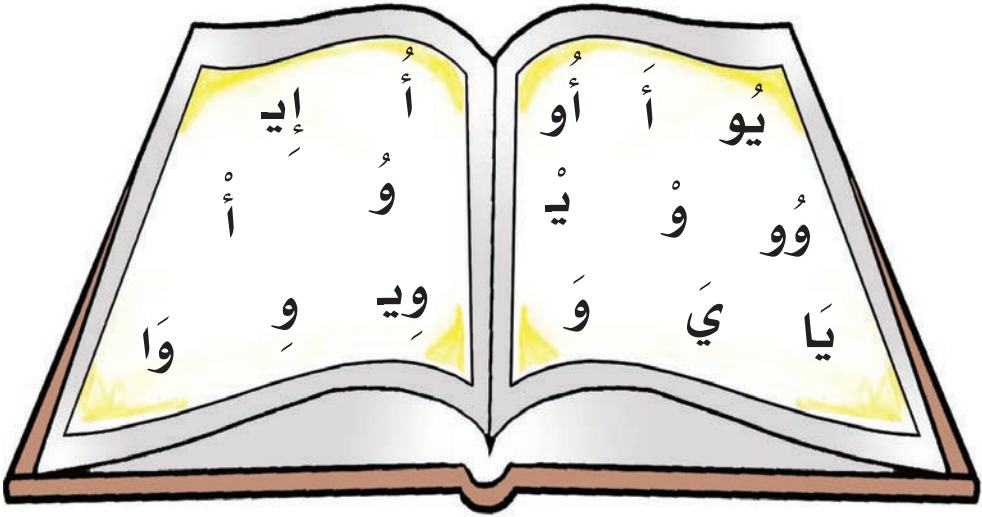 يُو أَ أُو
وُو وْ يْـ
يَا يَ وَ
أُ إِيـ
وُ أْ
وِيـ وِ وَا